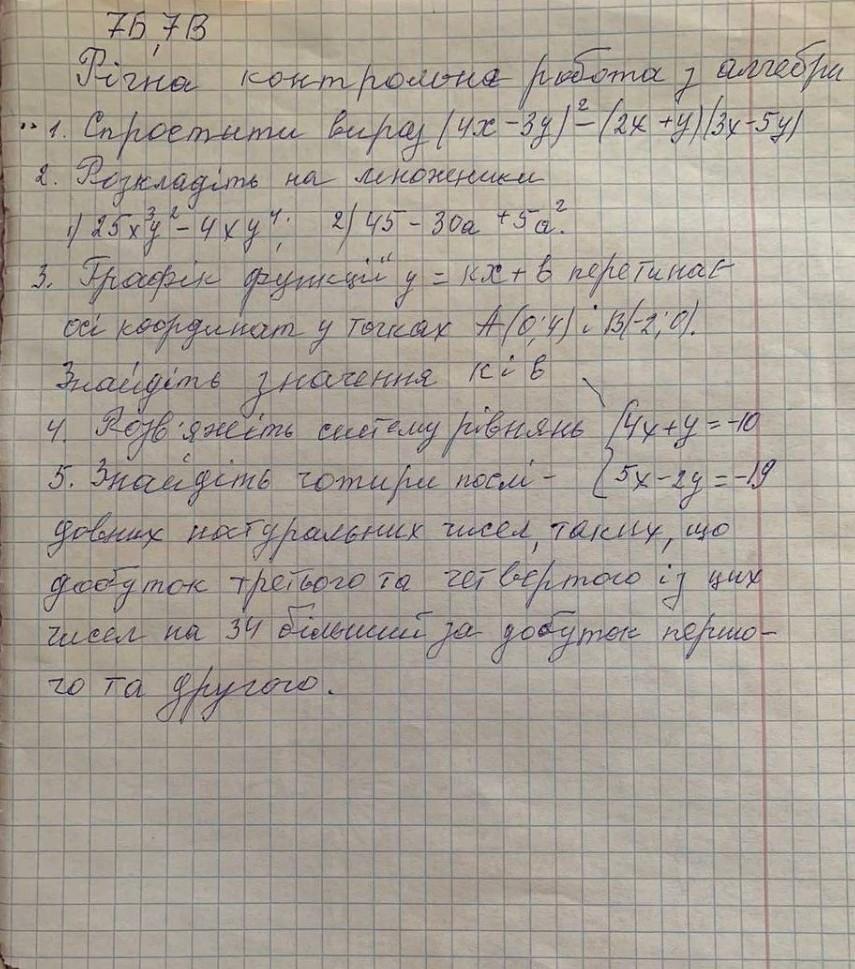 7Б, 7В
Річна контрольна робота з алгебри
1. Спростити вираз (4x-3y)²-(2x+y)(3x-5y)
2. Розкладіть на множники
1) 25x³y²-4xy⁴; 2) 45-30a+5a².
3. Графік функції y=kx+b перетинає
осі координат у точках A(0;4) і B(-2;0).
Знайдіть значення k і b
4. Розв'яжіть систему рівнянь {4x+y=-10
5. Знайдіть чотири послі- {5x-2y=-19
довних натуральних чисел, таких, що
добуток третього та четвертого із цих
чисел на 34 більший за добуток першо-
го та другого.